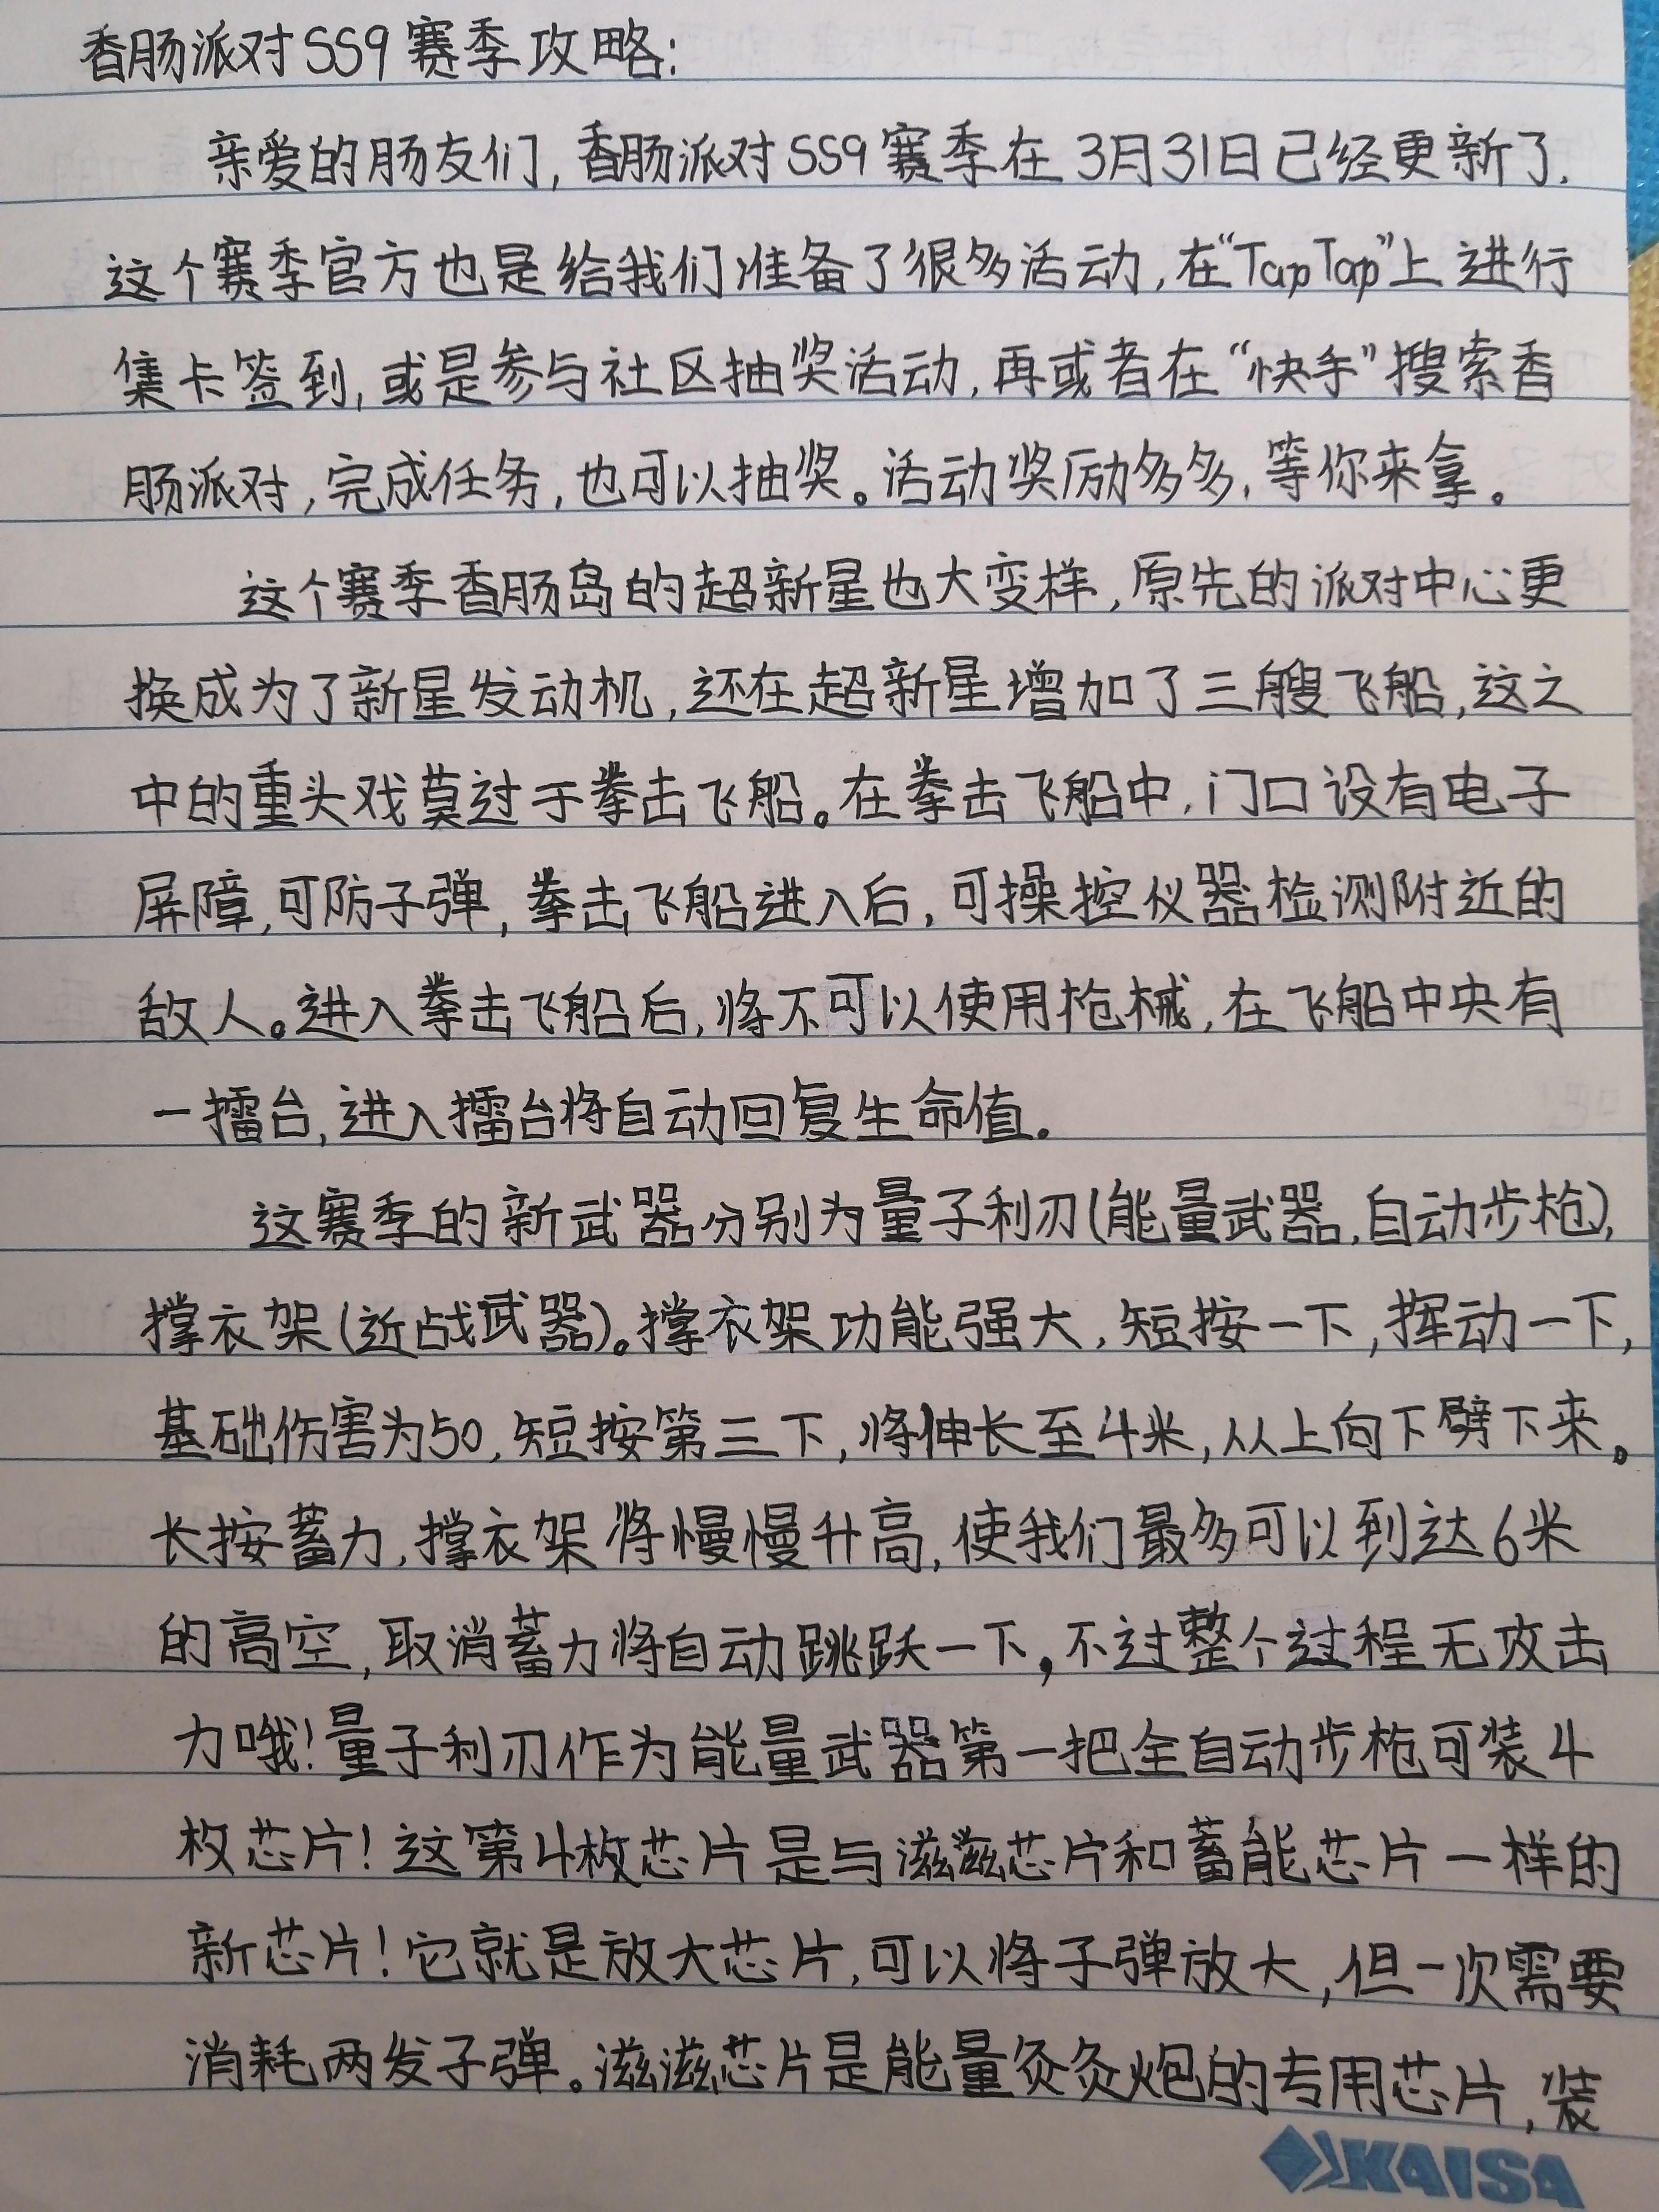 香肠派对SS9赛季攻略:
亲爱的肠友们,香肠派对SS9赛季在3月31日已经更新了.
这个赛季官方也是给我们准备了很多活动,在“TapTap”上进行
集卡签到,或是参与社区抽奖活动,再或者在“快手”搜索香
肠派对,完成任务,也可以抽奖。活动奖励多多,等你来拿。
这个赛季香肠岛的超新星也大变样,原先的派对中心更
换成为了新星发动机,还在超新星增加了三艘飞船,这之
中的重头戏莫过于拳击飞船。在拳击飞船中,门口设有电子
屏障,可防子弹,拳击飞船进入后,可操控仪器检测附近的
敌人。进入拳击飞船后,将不可以使用枪械,在飞船中央有
一擂台,进入擂台将自动回复生命值.
这赛季的新武器分别为量子利刃(能量武器,自动步枪),
撑衣架(近战武器)。撑衣架功能强大,短按一下,挥动一下,
基础伤害为50,短按第三下,将伸长至4米,从上向下劈下来。
长按蓄力,撑衣架将慢慢升高,使我们最多可以到达6米
的高空,取消蓄力将自动跳跃一下,不过整个过程无攻击
力哦!量子利刃作为能量武器第一把全自动步枪可装4
枚芯片!这第4枚芯片是与滋滋芯片和蓄能芯片一样的
新芯片!它就是放大芯片,可以将子弹放大,但一次需要
消耗两发子弹。滋滋芯片是能量灸灸炮的专用芯片,装
KAISA